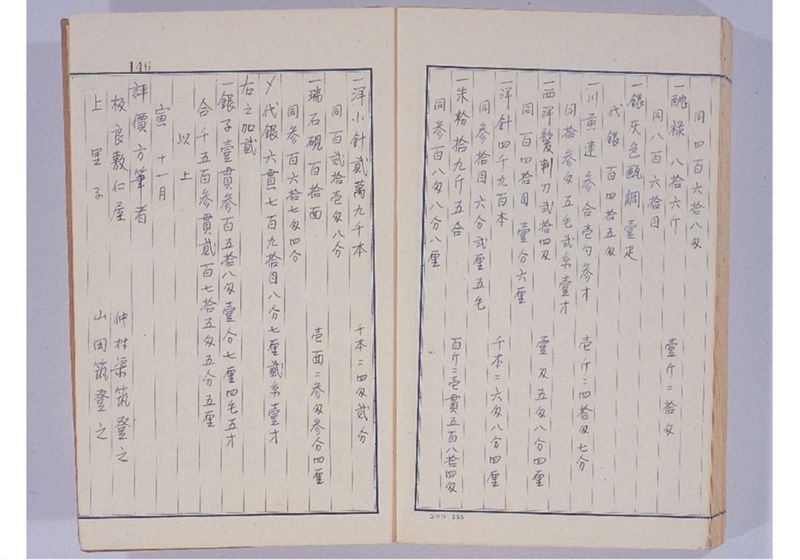 同四百六拾八匁
一醂禄 八拾六斤 壹斤ニ拾匁
同八百六拾目
一銀灰色 壹疋
代銀 百四拾五匁
一川黄連 参合壱勺参才 壱斤ニ四拾匁七分
同拾参匁五毛弐糸壹才
一西洋髪剃刀弐拾四刄 壹刄五匁八分四厘
同百四拾目壹分六厘
一洋針四千九百本 千本ニ六匁八分四厘
同参拾目六分弐厘五毛
一朱粉拾九斤五合 百斤ニ壱貫五百八拾四匁
同参百八匁八分八厘
146
一洋小針貳萬九千本 千本ニ四匁貳分
同百貳拾壱匁八分
一瑞石硯百拾面 壱面ニ参匁参分四厘
同参百六拾七匁四分
〆代銀六貫七百九拾目八分七厘貳糸壹才
右之加貳
一銀子壹貫参百五拾八匁壹分七厘四毛五才
合千五百参貫貳百七拾五匁五分五厘
以上
寅 十一月
評價方筆者
板良敷仁屋 仲村渠筑登之
上里子 山田筑登之